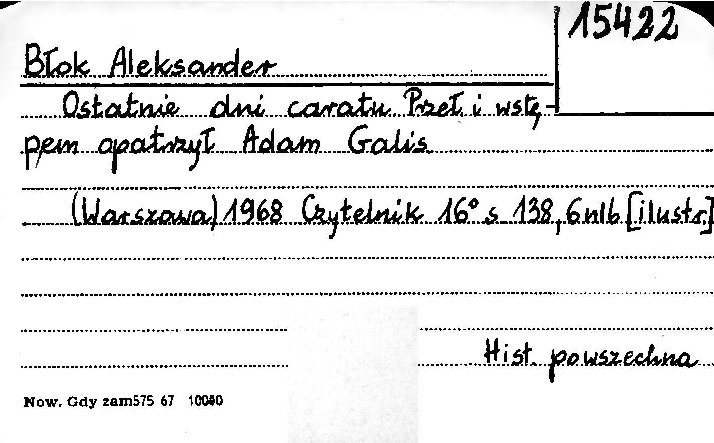 15422
Błok Aleksander
Ostatnie dni caratu Przeł i wstę-
pem opatrzył Adam Galis
(Warszawa) 1968 Czytelnik 16° s 138, 6 nlb [ilustr.]
Hist. powszechna
Now. Gdy zam575 67 10000